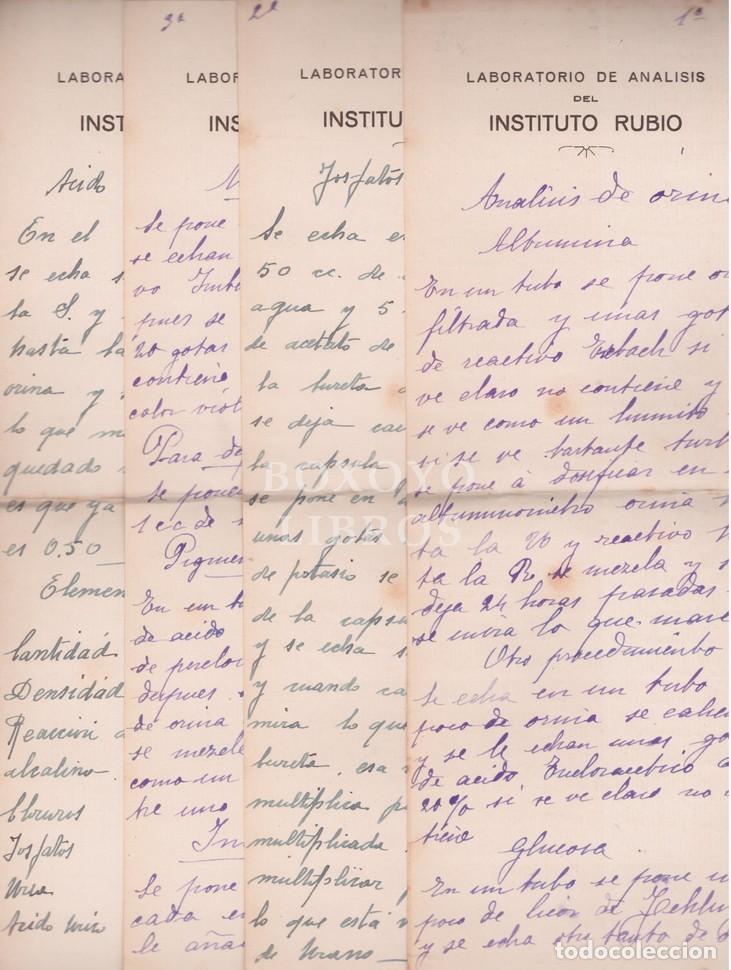 LABORA
INST
Acido
En el
se echa s
la S. y
hasta la
orina y
lo que m
quedado
es que ya
es 0.50
Elemen
Cantidad
Densidad
Reacción a
alcalino
Cloruros
Fosfatos
Urea
Acido Urico
3ª
LABOR
INS
Se pone
se echan
vo
pues se
20 gotas
contiene
color viol
Para de
se ponen
1 cc de
Pigmen
En un tu
de acido
de perclor
despues
de orina
se mezcle
como un
tre uno
In
Se pone
cada en
le aña
2ª
LABORATOR
INSTITU
Fosfatos
Se echa e
50 cc. de
agua y 5
de acetato de
la bureta
se deja cae
la capsula
se pone en
unas gotas
de potasio se
de la capsu
y se echa s
y cuando ca
mira lo que
bureta, esa
multiplica p
multiplicada
multiplicar
lo que está
de Urano
1ª
LABORATORIO DE ANALISIS
DEL
INSTITUTO RUBIO
Analisis de orina
Albumina
En un tubo se pone or
filtrada y unas got
de reactivo Esbach si
ve claro no contiene y
se ve como un humito
si se ve bastante turb
se pone á dosificar en
albuminometro orina
ta la U y reactivo
ta la R, se mezcla y s
deja 24 horas pasadas
se mira lo que marc
Otro procedimiento
Se echa en un tubo
poco de orina se calien
y se le echan unas go
de acido Tricloracetico a
20% si se ve claro no
tiene
Glucosa
En un tubo se pone u
poco de licor de Fehlin
y se echa otro tanto de
BOXOYO
LIBROS
todocoleccion